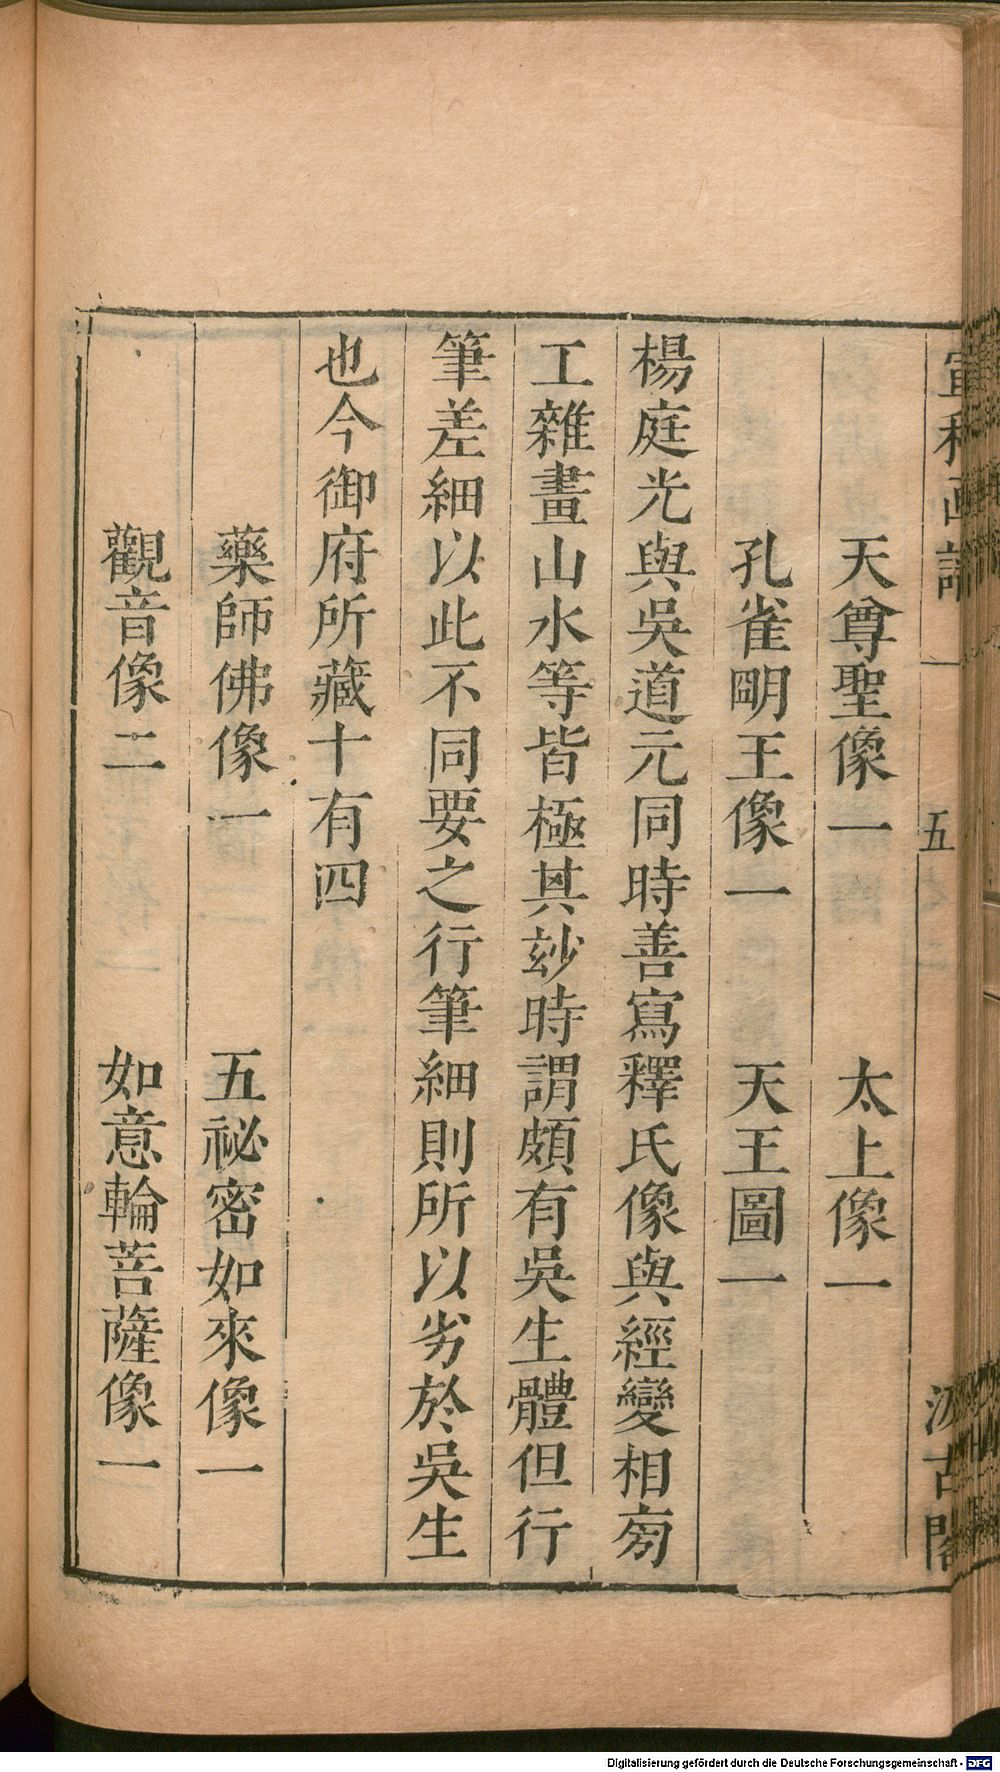 宣和画譜 一 五 汲古閣
天尊聖像一 太上像一
孔雀明王像一 天王圖一
楊庭光與吳道元同時善寫釋氏像與經變相㫄
工雜畫山水等皆極其玅時謂頗有吳生體但行
筆差細以此不同要之行筆細則所以劣於吳生
也今御府所藏十有四
藥師佛像一 五祕密如來像一
觀音像二 如意輪菩薩像一
Digitalisierung gefördert durch die Deutsche Forschungsgemeinschaft - DFG